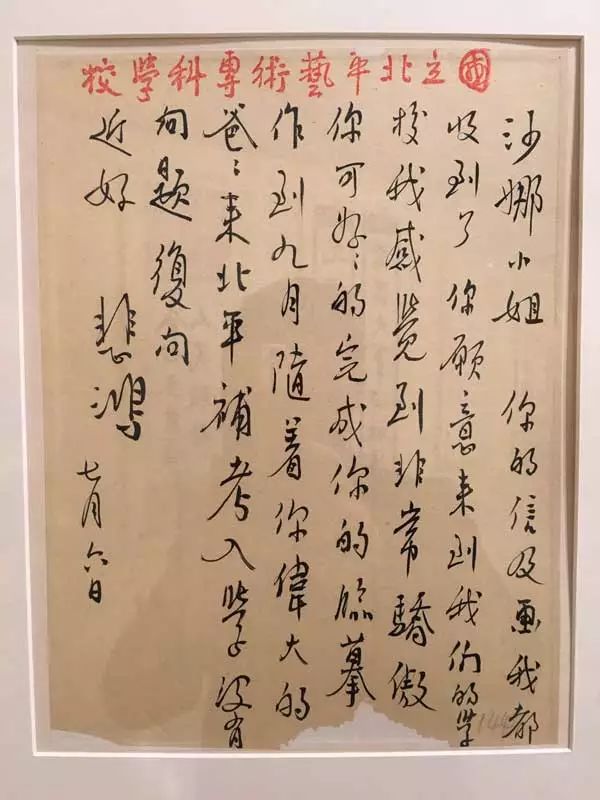 國立北平藝術專科學校
沙娜小姐 你的信及画我都
收到了你願意来到我们的學
校我感覺到非常驕傲
你可好〻的完成你的臨摹
作到九月隨着你偉大的
爸〻来北平補考入學没有
问題復问
近好
悲鴻
七月六日